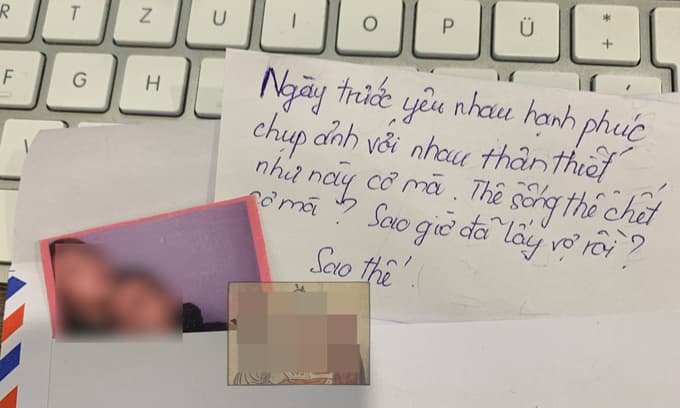 R T Z U I O P Ü *
+
F G H
Ngày trước yêu nhau hạnh phúc
chụp ảnh với nhau thân thiết
như này cơ mà. Thề sống thề chết
cơ mà? Sao giờ đã lấy vợ rồi?
Sao thế.